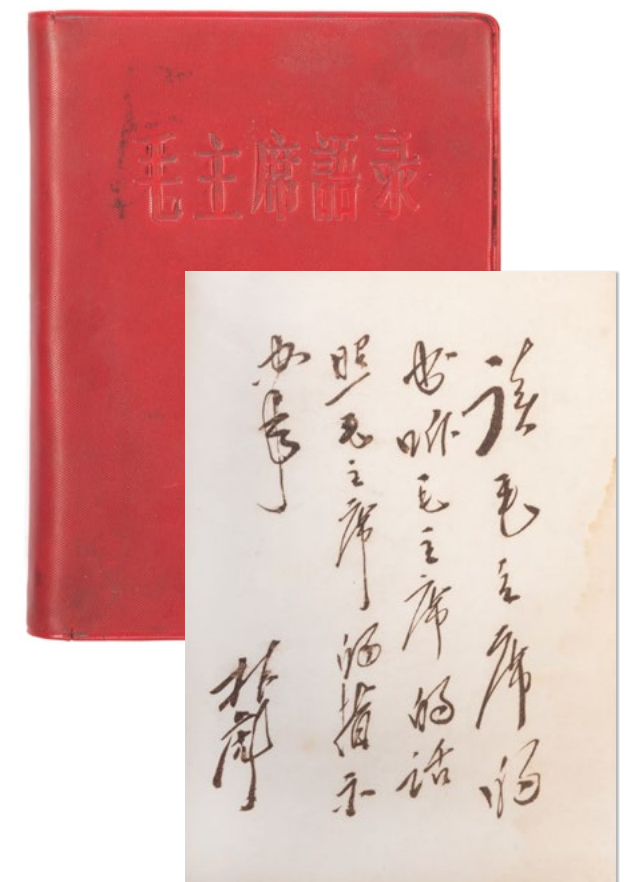 毛主席語录
读毛主席的
书听毛主席的话
照毛主席的指示
办事
林彪